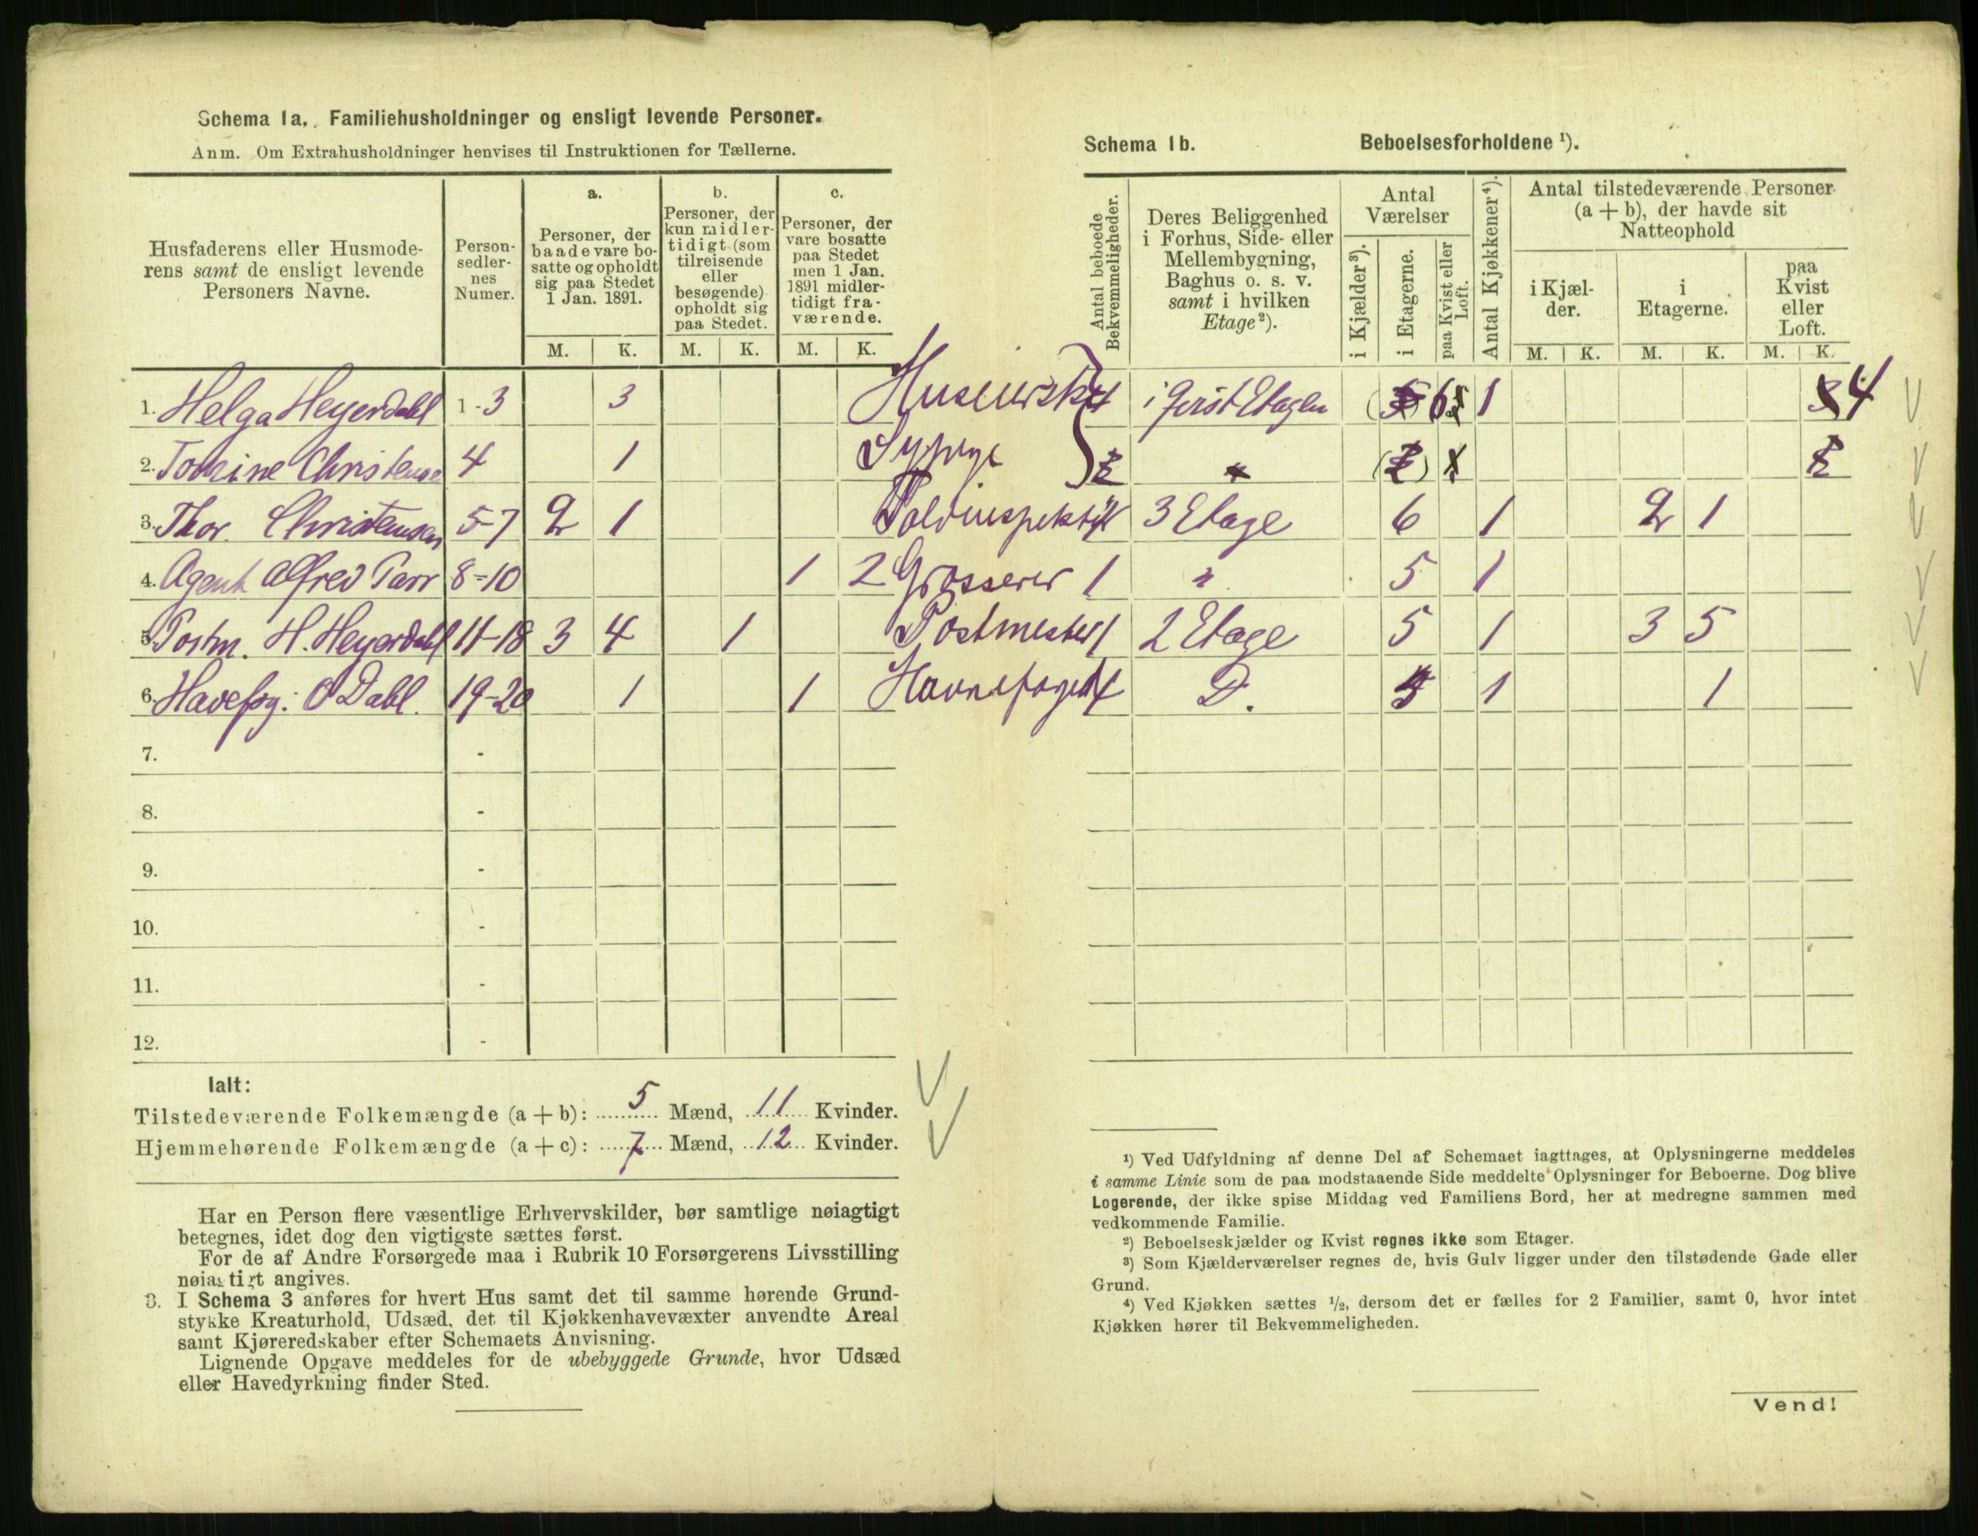 Schema 1a. Familiehusholdninger og ensligt levende Personer.
Anm. Om Extrahusholdninger henvises til Instruktionen for Tællerne.
Husfaderens eller Husmode-
rens samt de ensligt levende
Personers Navne.
Person-
sedler-
nes
Numer.
a.
Personer, der
baade vare bo-
satte og opholdt
sig paa Stedet
1 Jan. 1891.
b.
Personer, der
kun midler-
tidigt (som
tilreisende
eller
besøgende)
opholdt sig
paa Stedet.
c.
Personer, der
vare bosatte
paa Stedet
men 1 Jan.
1891 midler-
tidigt fra-
værende.
M. K. M. K. M. K.
1. Helga Heyerdahl 1-3 3
2. Christense 4 1 Syppige
3. Thor. Christensen 5-7 2 1 Toldinspektør
4. Agent Alfred Parr 8-10 1 2 Grosserer
5. Postm. H. Heyerdahl 11-18 3 4 1 Postmester
6. Havefog: O Dahl. 19-20 1 1 Havnefoged
7. -
8. -
9. -
10. -
11. -
12. -
Ialt:
Tilstedeværende Folkemængde (a + b): 5 Mænd, 11 Kvinder.
Hjemmehørende Folkemængde (a + c): 7 Mænd, 12 Kvinder.
Har en Person flere væsentlige Erhvervskilder, bør samtlige nøiagtigt
betegnes, idet dog den vigtigste sættes først.
For de af Andre Forsørgede maa i Rubrik 10 Forsørgerens Livsstilling
nøiagtigt angives.
3. I Schema 3 anføres for hvert Hus samt det til samme hørende Grund-
stykke Kreaturhold, Udsæd, det til Kjøkkenhavevæxter anvendte Areal
samt Kjøreredskaber efter Schemaets Anvisning.
Lignende Opgave meddeles for de ubebyggede Grunde, hvor Udsæd
eller Havedyrkning finder Sted.
Schema 1b. Beboelsesforholdene ¹).
Antal beboede
Bekvemmeligheder.
Deres Beliggenhed
i Forhus, Side- eller
Mellembygning,
Baghus o. s. v.
samt i hvilken
Etage²).
Antal
Værelser
i Kjælder³).
i Etagerne.
paa Kvist eller
Loft.
Antal Kjøkkener⁴).
Antal tilstedeværende Personer
(a + b), der havde sit
Natteophold
i Kjæl-
der.
i
Etagerne.
paa
Kvist
eller
Loft.
M. K. M. K. M. K.
i first Etagen 6 1 4
"
3 Etage 6 1 2 1
1 " 5 1
1 2 Etage 5 1 3 5
D. 1 1
¹) Ved Udfyldning af denne Del af Schemaet iagttages, at Oplysningerne meddeles
i samme Linie som de paa modstaaende Side meddelte Oplysninger for Beboerne. Dog blive
Logerende, der ikke spise Middag ved Familiens Bord, her at medregne sammen med
vedkommende Familie.
²) Beboelseskjælder og Kvist regnes ikke som Etager.
³) Som Kjælderværelser regnes de, hvis Gulv ligger under den tilstødende Gade eller
Grund.
⁴) Ved Kjøkken sættes ½, dersom det er fælles for 2 Familier, samt 0, hvor intet
Kjøkken hører til Bekvemmeligheden.
Vend!